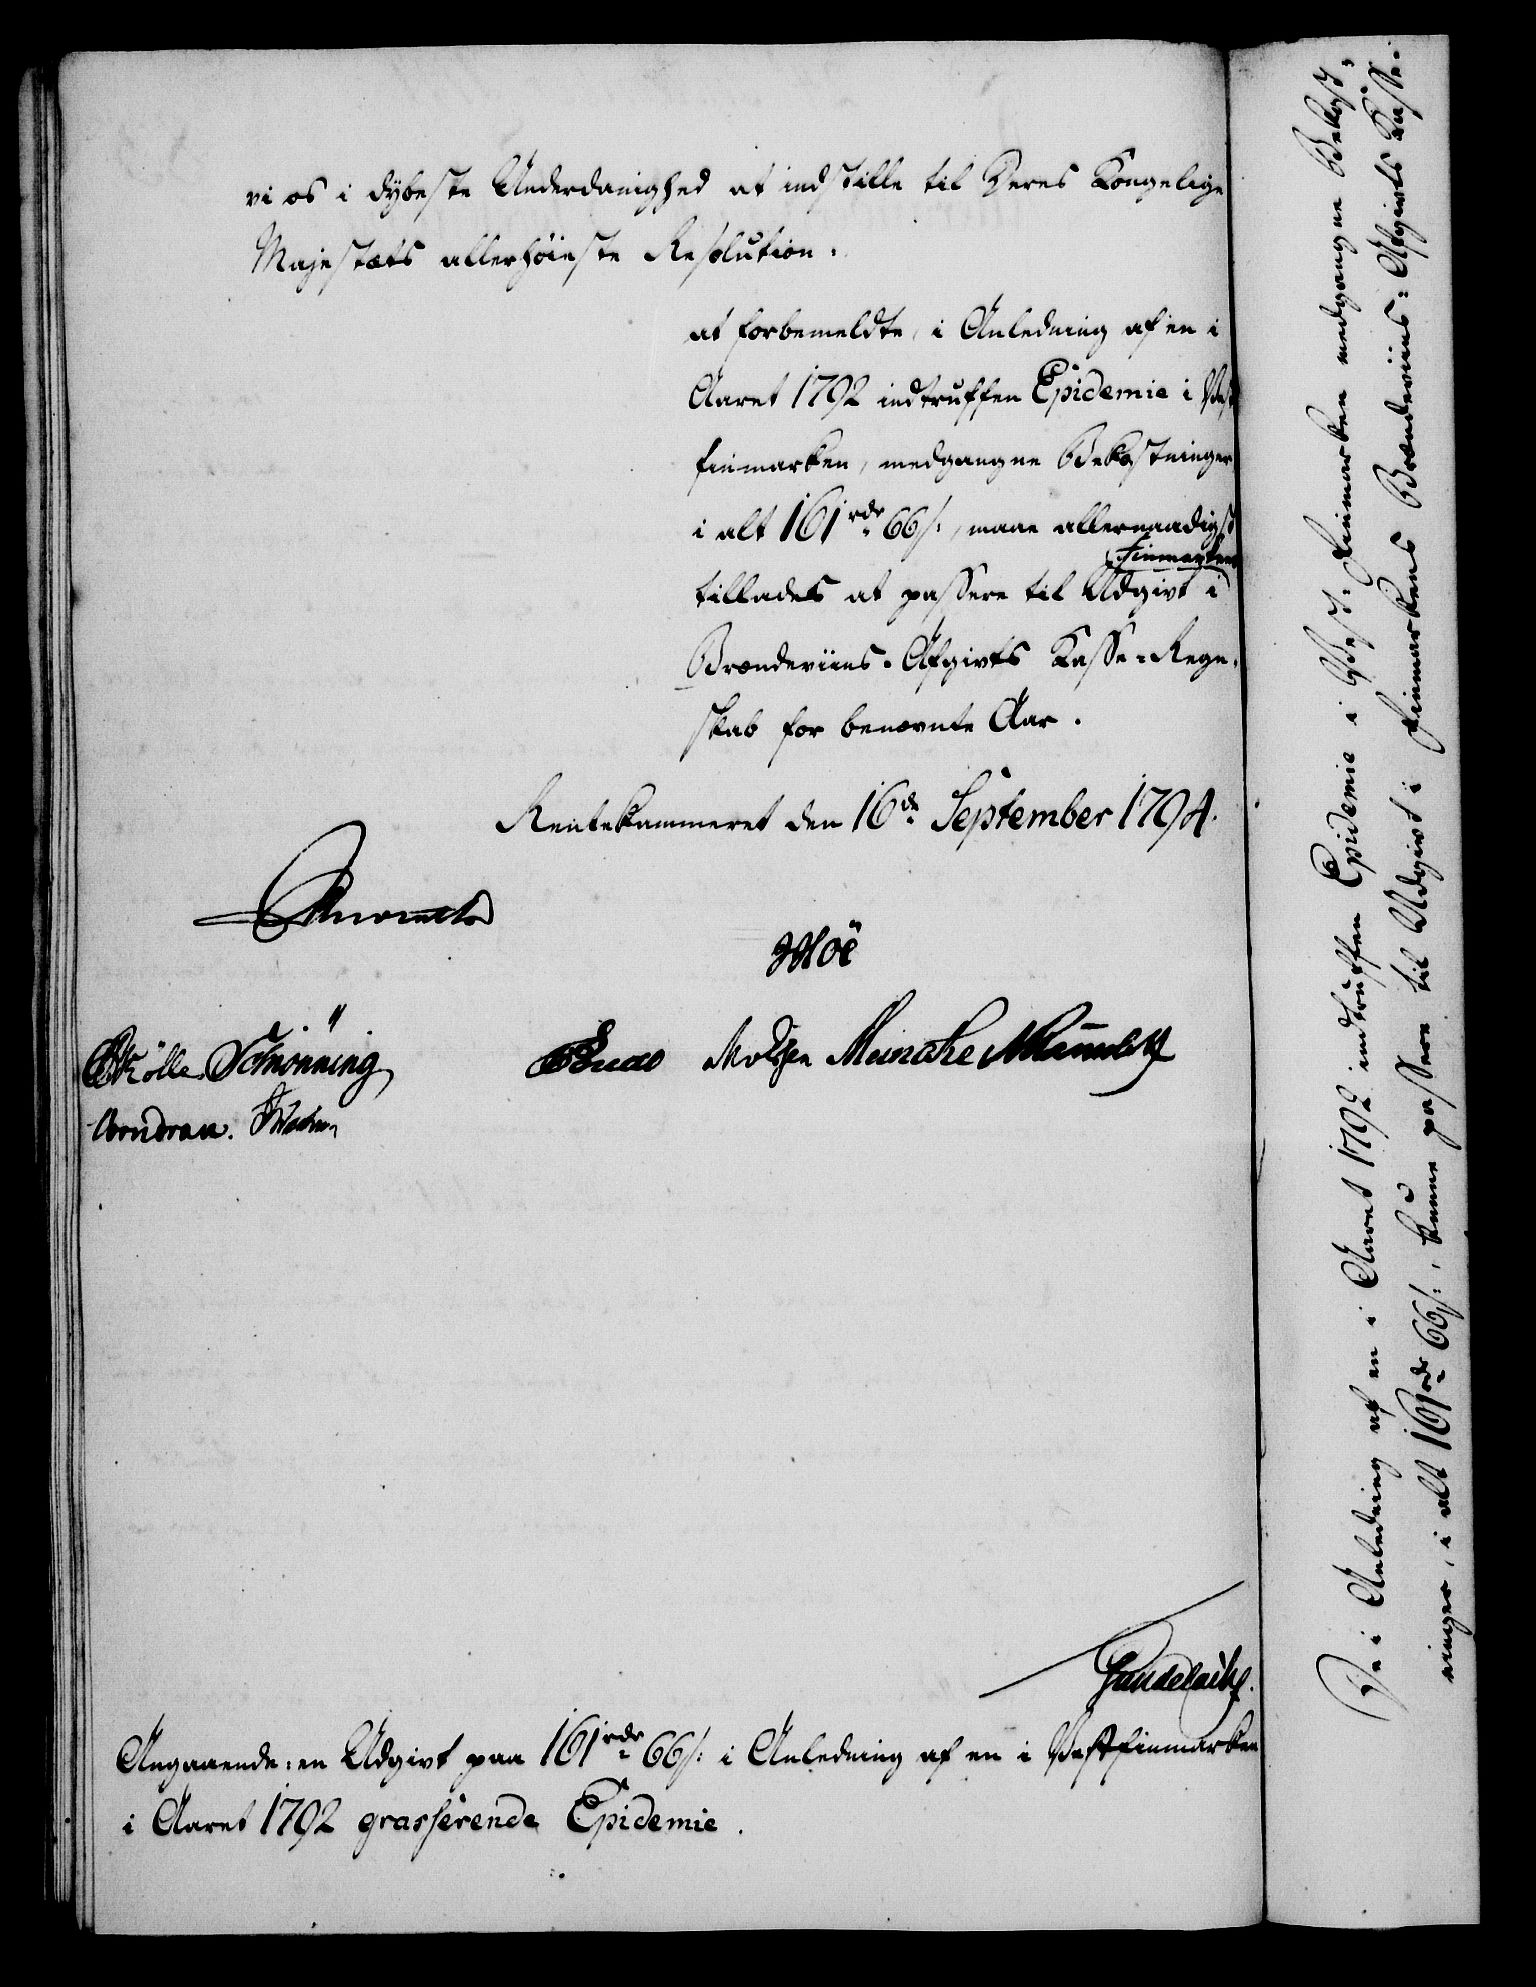 vi os i dybeste Underdanighed at indstille til Deres Kongelige
Majestæts allerhöieste Resolution:
at forbemeldte, i Anledning af en i
Aaret 1792 indtruffen Epidemie i Vest
finmarken, medgangne Bekostninger
i alt 161 rdr 66 s:, maae allernaadigst
Finmarkens
tillades at passere til Udgivt i
Brændeviins-Afgivts Kasse-Regn-
skab for benævnte Aar.
Rentekammeret den 16de September 1794.
Moë
Schiönning
Meinche
Angaaende: en Udgivt paa 161 rdr 66 s: i Anledning af en i Vestfinmarken
i Aaret 1792 grasserende Epidemie.
De i Anledning af en i Aaret 1792 indtruffen Epidemie i Vest-Finmarken medgangne Bekost-
ninger, i alt 161 rdr 66 s:, kunne passere til Udgivt i Finmarkens Brændeviins-Afgivts Kasse-